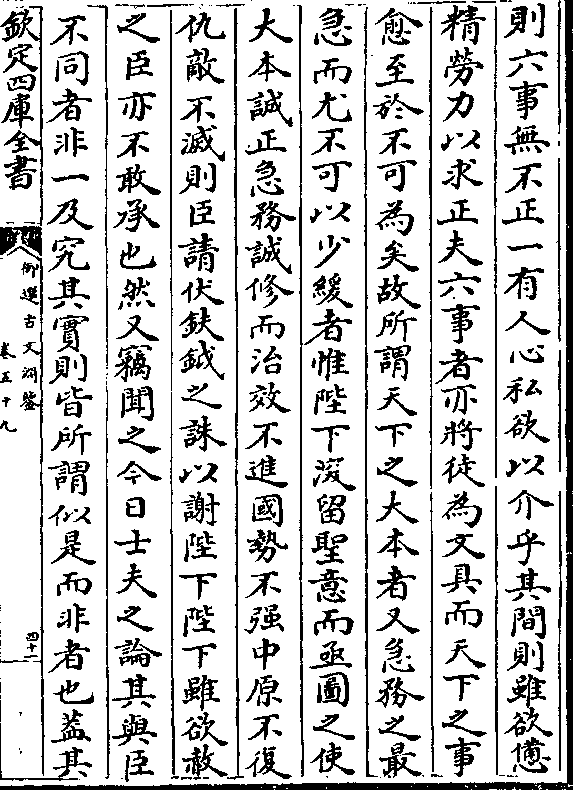 則六事無不正一有人心私欲以介乎其間則雖欲憊
精勞力以求正夫六事者亦將徒為文具而天下之事
愈至於不可為矣故所謂天下之大本者又急務之最
急而尤不可以少緩者惟陛下深留聖意而亟圖之使
大本誠正急務誠修而治效不進國勢不强中原不復
仇敵不滅則臣請伏鈇鉞之誅以謝陛下陛下雖欲赦
之臣亦不敢承也然又竊聞之今日士夫之論其與臣
不同者非一及究其實則皆所謂似是而非者也蓋其
欽定四庫全書
御選古文淵鑒
卷五十九
四十二